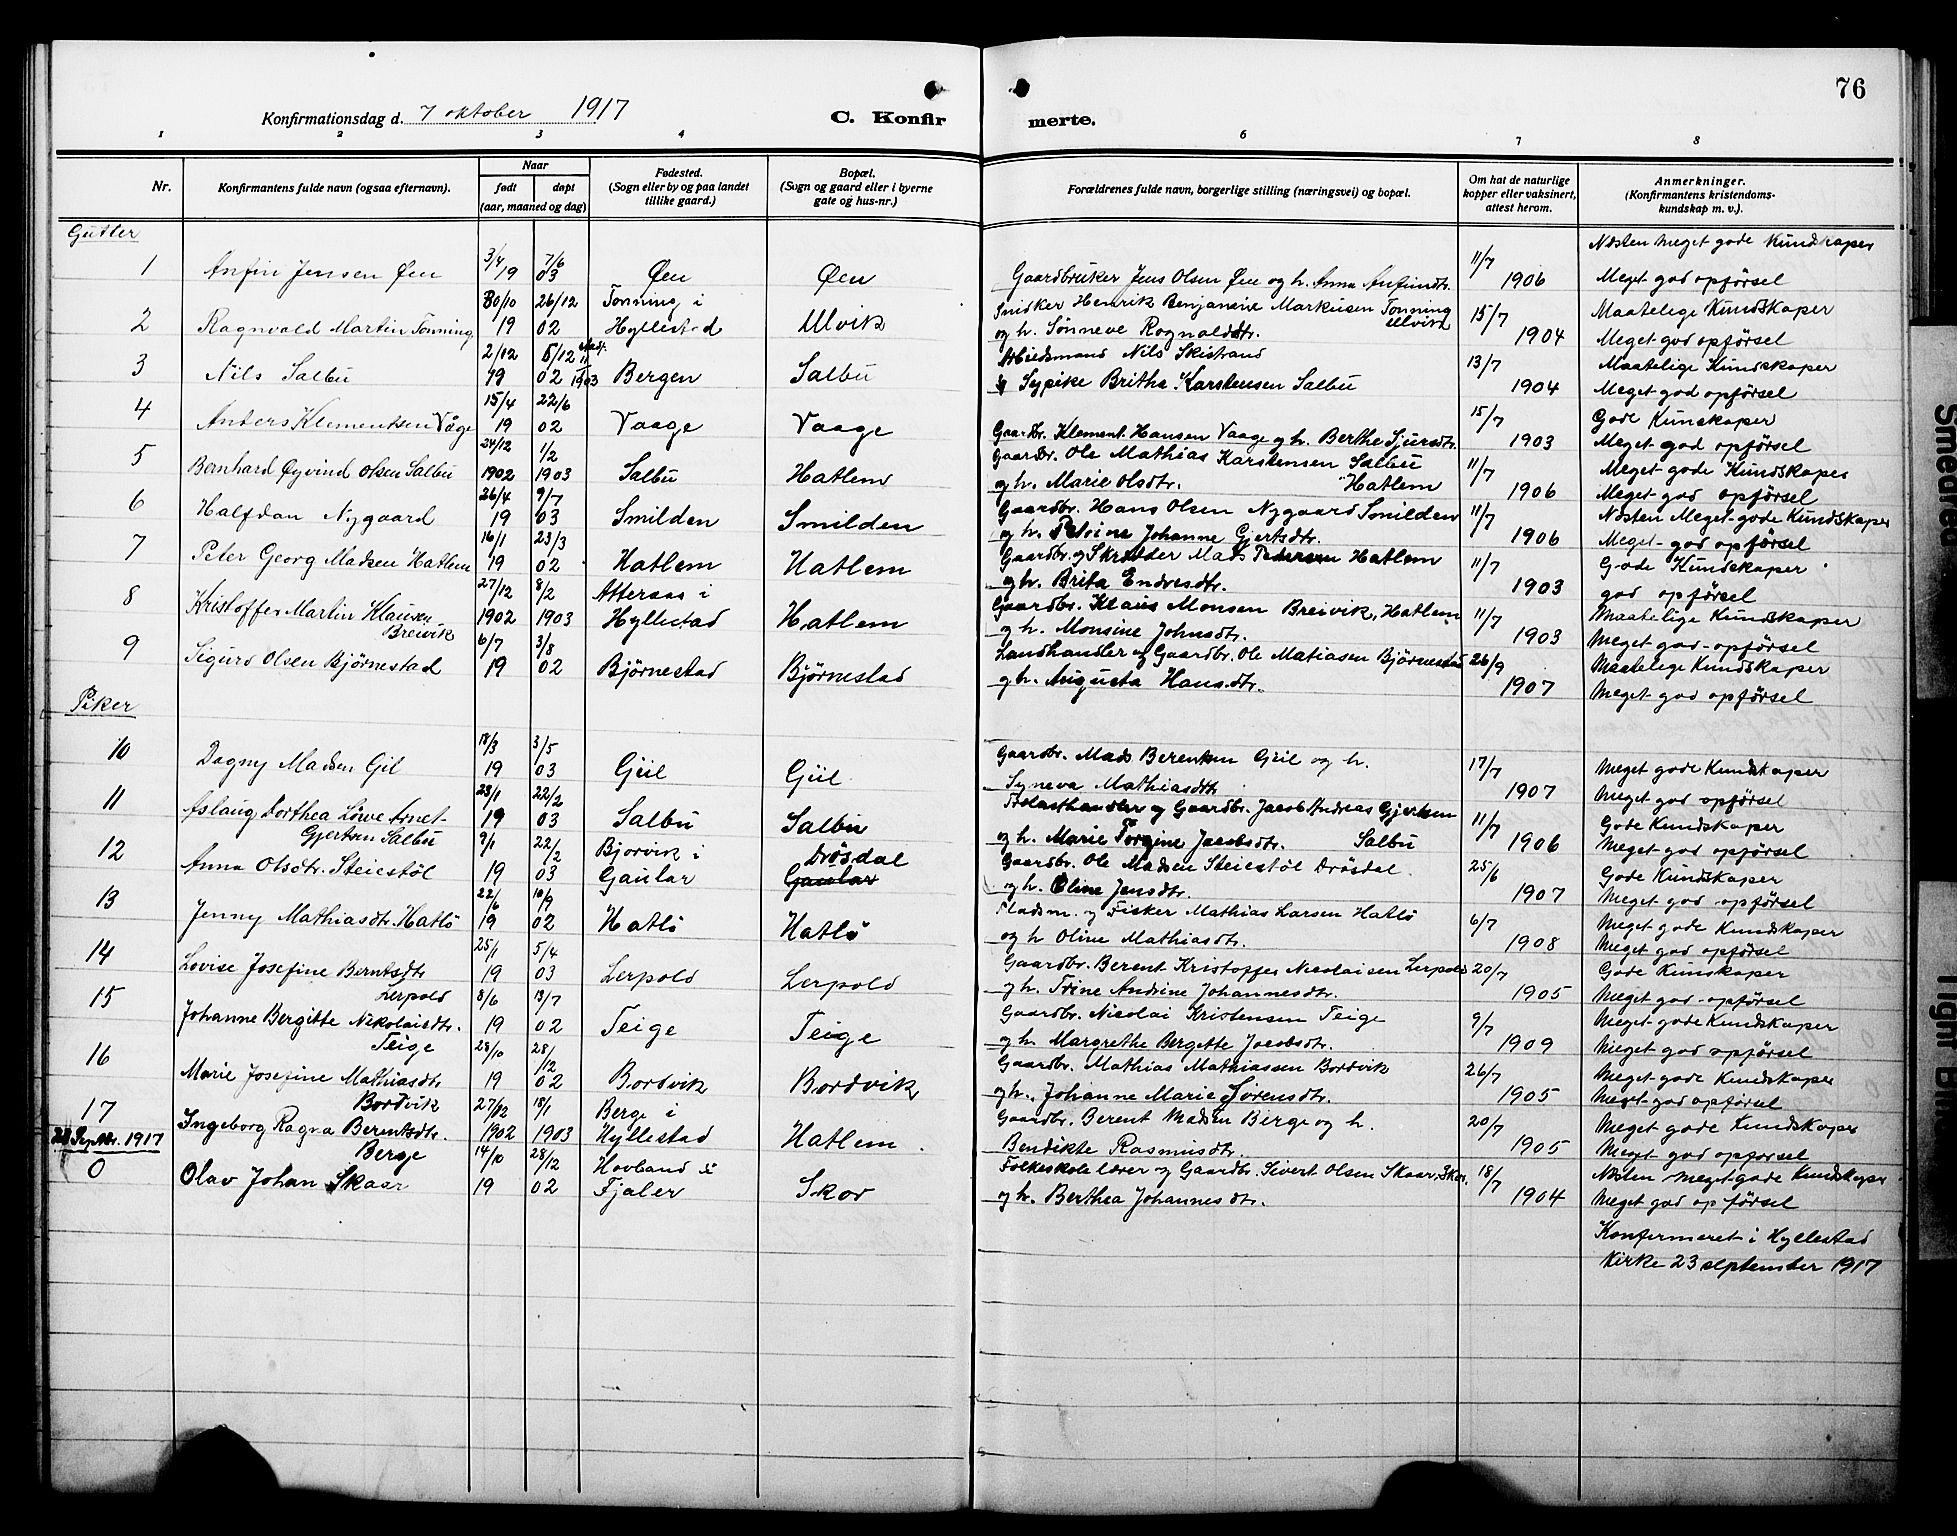 76
Konfirmationsdag d. 7 oktober 1917
C. Konfirmerte.
1 2 3 4 6 7 8
Nr.
Konfirmantens fulde navn (ogsaa efternavn).
Naar
født
døpt
(aar, maaned og dag)
Fødested.
(Sogn eller by og paa landet
tillike gaard.)
Bopæl.
(Sogn og gaard eller i byerne
gate og hus-nr.)
Forældrenes fulde navn, borgerlige stilling (næringsvei) og bopæl.
Om hat de naturlige
kopper eller vaksinert,
attest herom.
Anmerkninger.
(Konfirmantens kristendoms-
kundskap m. v.).
Gutter
1 Anfin Jensen Øen 3/4 19 7/6 03 Øen Øen
Gaardbruker Jens Olsen Øen og h. Anna Anfindtr. 11/7 1906
Næsten meget gode Kundskaper
Meget god opförsel
2 Ragnvald Martin Tonning 30/10 19 26/12 02 Tonning i Hyllestad Ulvik
Snidker Henrik Benjamine Markusen Tonning Ulvik
og h. Sönneve Rognaldsdtr. 15/7 1904
Maatelige Kundskaper
Meget god opförsel
3 Nils Salbu 2/12 19 5/12 02 1903 Bergen Salbu
Arbeidsmand Nils Skistrand
Sypike Britha Karstensen Salbu 13/7 1904
Maatelige Kundskaper
Meget god opförsel
4 Anders Klementsen Våge 15/4 19 22/6 02 Vaage Vaage
Gaardbr. Klement Hansen Vaage og h. Berthe Sjursdtr. 15/7 1903
Gode Kunskaper
Meget god opförsel
5 Bernhard Øyvind Olsen Salbu 24/12 1902 1/2 1903 Salbu Hatlem
Gaardbr. Ole Mathias Karstensen Salbu
og h. Marie Olsdtr. Hatlem 11/7 1906
Meget gode Kundskaper
Meget god opförsel
6 Halfdan Nygaard 26/4 19 9/7 03 Smilden Smilden
Gaardbr. Hans Olsen Nygaard Smilden
og h. Petrine Johanne Gjertsdtr. 11/7 1906
Næsten Meget gode Kundskaper
Meget god opförsel
7 Peter Georg Madsen Hatlem 16/1 19 23/3 02 Hatlem Hatlem
Gaardbr. og Skrædder Mads Pedersen Hatlem
og h. Brita Endresdtr. 11/7 1903
Gode Kundskaper
god opförsel
8 Kristoffer Martin Klausen Breivik 27/12 1902 8/2 1903 Atteraas i Hyllestad Hatlem
Gaardbr. Klaus Monsen Breivik, Hatlem
og h. Monsine Johnsdtr. 11/7 1903
Maatelige Kundskaper
Meget god opförsel
9 Sigurd Olsen Björnestad 6/7 19 3/8 02 Björnestad Björnestad
Landhandler og Gaardbr. Ole Matiasen Björnestad
og h. Augusta Hansdtr. 26/9 1907
Maatelige Kundskaper
Meget god opförsel
Piker
10 Dagny Madsen Gil 18/3 19 3/5 03 Gjil Gjil
Gaardbr. Mads Berentsen Gjil og h.
Syneva Mathiasdtr. 17/7 1907
Meget gode Kundskaper
Meget god opförsel
11 Aslaug Dorthea Löwe Arnet-
Gjertsen Salbu 23/1 19 22/2 03 Salbu Salbu
Trelasthandler og Gaardbr. Jacob Andreas Gjertsen
og h. Marie Torgine Jacobsdtr. Salbu 11/7 1906
Gode Kundskaper
Meget god opförsel
12 Anna Olsdtr. Steiestöl 9/1 19 22/2 03 Bjorvik i Gaular Drösdal Gaular
Gaardbr. Ole Madsen Steiestöl Drösdal
og h. Eline Jensdtr. 25/6 1907
Gode Kundskaper
Meget god opförsel
13 Jenny Mathiasdtr. Hatlö 22/6 19 10/9 02 Hatlö Hatlö
Pladsm. og Fisker Mathias Larsen Hatlö
og h Oline Mathiasdtr. 6/7 1908
Meget gode Kundskaper
Meget god opförsel
14 Lovise Josefine Berntsdtr Lerpold 25/1 19 5/4 03 Lerpold Lerpold
Gaardbr. Berent Kristoffer Nicolaisen Lerpold
og h. Trine Andrine Johannesdtr. 20/7 1905
Gode Kunskaper
Meget god opförsel
15 Johanne Bergitte Nikolaisdtr. Teige 8/6 19 13/7 02 Teige Teige
Gaardbr. Nicolai Kristensen Teige
og h. Margrethe Bergitte Jacobsdtr. 9/7 1909
Meget gode Kundskaper
Meget god opförsel
16 Marie Josefine Mathiasdtr Bordvik 28/10 19 28/12 02 Bordvik Bordvik
Gaardbr. Mathias Mathiassen Bordvik
og h. Johanne Marie Sörensdtr. 26/7 1905
Meget gode Kundskaper
Meget god opförsel
17 Ingeborg Ragna Berentsdtr. Berge 27/12 1902 18/1 1903 Berge i Hyllestad Hatlem
Gaardbr. Berent Madsen Berge og h.
Bendikte Rasmusdtr. 20/7 1905
Meget gode Kundskaper
Meget god opförsel
23 Septbr. 1917
0 Olav Johan Skaar 14/10 19 28/12 02 Hovland i Fjaler Skor
Folkeskolelærer og Gaardbr. Sivert Olsen Skaar, Skor.
og h. Berthea Johannesdtr. 18/7 1904
Næsten meget gode Kundskaper
Meget god opförsel
Konfermeret i Hyllestad
Kirke 23 september 1917